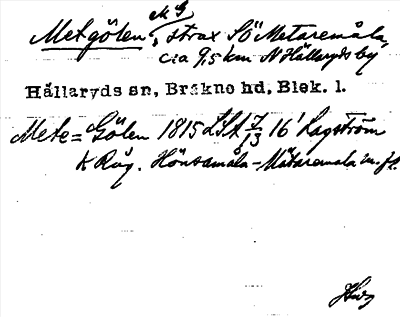 Metgölen, strax SÖ Metaremåla,
cia 9,5 km N Hällaryds by
Hällaryds sn, Bräkne hd, Blek. l.
Mete= Gölen 1815 LSA 7/13 16' Lagström
K Råg. Hönsamåla-Mätaremåla m. fl.